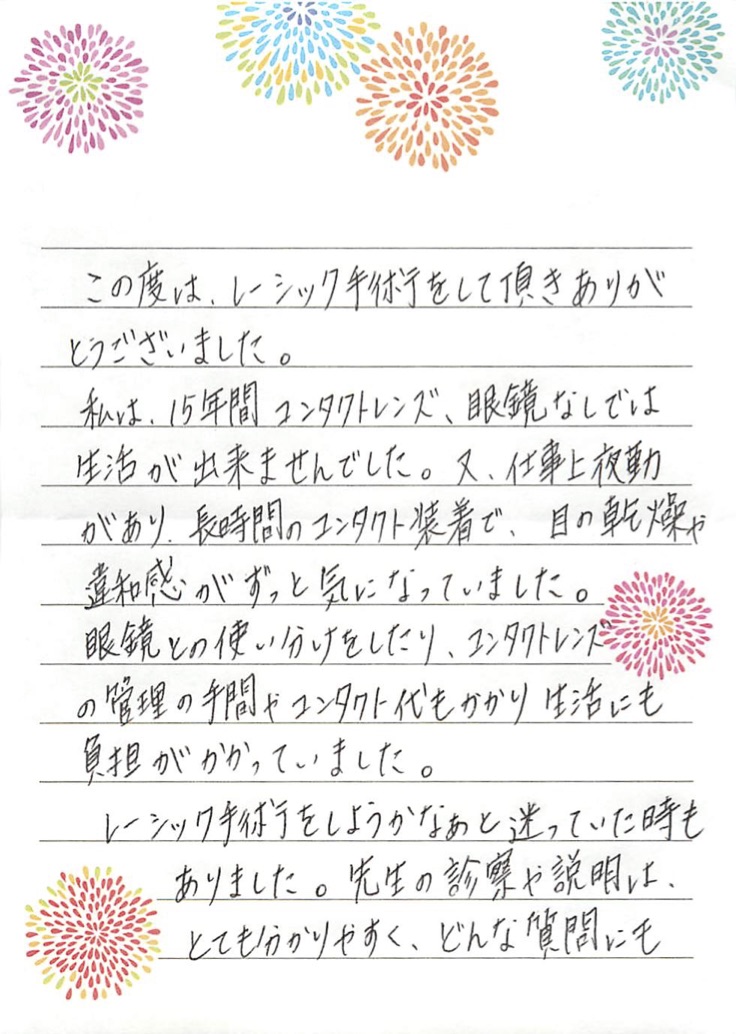 この度は、レーシック手術をして頂きありが
とうございました。
私は、15年間コンタクトレンズ、眼鏡なしでは
生活が出来ませんでした。又、仕事上夜勤
があり、長時間のコンタクト装着で、目の乾燥や
違和感がずっと気になっていました。
眼鏡との使い分けをしたり、コンタクトレンズ
の管理の手間やコンタクト代もかかり生活にも
負担がかかっていました。
レーシック手術をしようかなぁと迷っていた時も
ありました。先生の診察や説明は、
とても分かりやすく、どんな質問にも